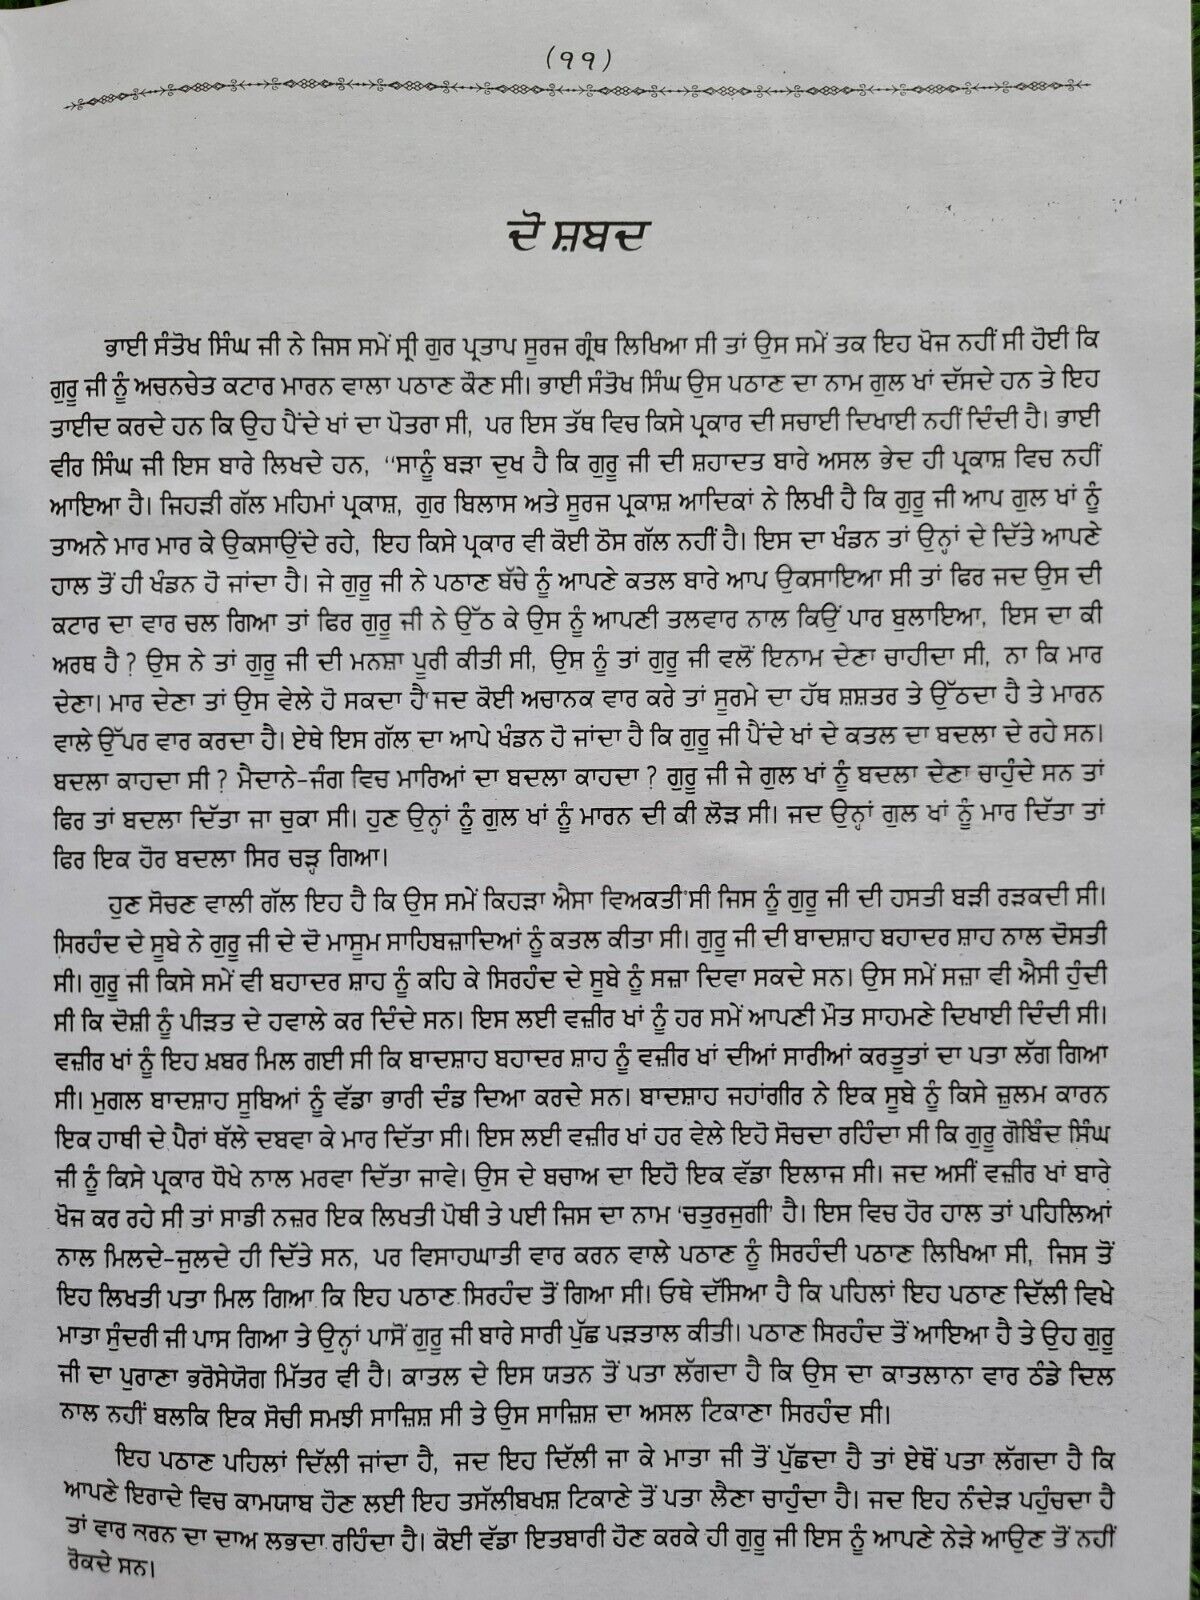 (੧੧)
ਦੋ ਸ਼ਬਦ
ਭਾਈ ਸੰਤੋਖ ਸਿੰਘ ਜੀ ਨੇ ਜਿਸ ਸਮੇਂ ਸ੍ਰੀ ਗੁਰ ਪ੍ਰਤਾਪ ਸੂਰਜ ਗ੍ਰੰਥ ਲਿਖਿਆ ਸੀ ਤਾਂ ਉਸ ਸਮੇਂ ਤਕ ਇਹ ਖੋਜ ਨਹੀਂ ਸੀ ਹੋਈ ਕਿ
ਗੁਰੂ ਜੀ ਨੂੰ ਅਚਨਚੇਤ ਕਟਾਰ ਮਾਰਨ ਵਾਲਾ ਪਠਾਣ ਕੌਣ ਸੀ। ਭਾਈ ਸੰਤੋਖ ਸਿੰਘ ਉਸ ਪਠਾਣ ਦਾ ਨਾਮ ਗੁਲ ਖਾਂ ਦੱਸਦੇ ਹਨ ਤੇ ਇਹ
ਤਾਈਦ ਕਰਦੇ ਹਨ ਕਿ ਉਹ ਪੈਂਦੇ ਖਾਂ ਦਾ ਪੋਤਰਾ ਸੀ, ਪਰ ਇਸ ਤੱਥ ਵਿਚ ਕਿਸੇ ਪ੍ਰਕਾਰ ਦੀ ਸਚਾਈ ਦਿਖਾਈ ਨਹੀਂ ਦਿੰਦੀ ਹੈ। ਭਾਈ
ਵੀਰ ਸਿੰਘ ਜੀ ਇਸ ਬਾਰੇ ਲਿਖਦੇ ਹਨ, “ਸਾਨੂੰ ਬੜਾ ਦੁਖ ਹੈ ਕਿ ਗੁਰੂ ਜੀ ਦੀ ਸ਼ਹਾਦਤ ਬਾਰੇ ਅਸਲ ਭੇਦ ਹੀ ਪ੍ਰਕਾਸ਼ ਵਿਚ ਨਹੀਂ
ਆਇਆ ਹੈ। ਜਿਹੜੀ ਗੱਲ ਮਹਿਮਾਂ ਪ੍ਰਕਾਸ਼, ਗੁਰ ਬਿਲਾਸ ਅਤੇ ਸੂਰਜ ਪ੍ਰਕਾਸ਼ ਆਦਿਕਾਂ ਨੇ ਲਿਖੀ ਹੈ ਕਿ ਗੁਰੂ ਜੀ ਆਪ ਗੁਲ ਖਾਂ ਨੂੰ
ਤਾਅਨੇ ਮਾਰ ਮਾਰ ਕੇ ਉਕਸਾਉਂਦੇ ਰਹੇ, ਇਹ ਕਿਸੇ ਪ੍ਰਕਾਰ ਵੀ ਕੋਈ ਠੋਸ ਗੱਲ ਨਹੀਂ ਹੈ। ਇਸ ਦਾ ਖੰਡਨ ਤਾਂ ਉਨ੍ਹਾਂ ਦੇ ਦਿੱਤੇ ਆਪਣੇ
ਹਾਲ ਤੋਂ ਹੀ ਖੰਡਨ ਹੋ ਜਾਂਦਾ ਹੈ। ਜੇ ਗੁਰੂ ਜੀ ਨੇ ਪਠਾਣ ਬੱਚੇ ਨੂੰ ਆਪਣੇ ਕਤਲ ਬਾਰੇ ਆਪ ਉਕਸਾਇਆ ਸੀ ਤਾਂ ਫਿਰ ਜਦ ਉਸ ਦੀ
ਕਟਾਰ ਦਾ ਵਾਰ ਚਲ ਗਿਆ ਤਾਂ ਫਿਰ ਗੁਰੂ ਜੀ ਨੇ ਉੱਠ ਕੇ ਉਸ ਨੂੰ ਆਪਣੀ ਤਲਵਾਰ ਨਾਲ ਕਿਉਂ ਪਾਰ ਬੁਲਾਇਆ, ਇਸ ਦਾ ਕੀ
ਅਰਥ ਹੈ ? ਉਸ ਨੇ ਤਾਂ ਗੁਰੂ ਜੀ ਦੀ ਮਨਸ਼ਾ ਪੂਰੀ ਕੀਤੀ ਸੀ, ਉਸ ਨੂੰ ਤਾਂ ਗੁਰੂ ਜੀ ਵਲੋਂ ਇਨਾਮ ਦੇਣਾ ਚਾਹੀਦਾ ਸੀ, ਨਾ ਕਿ ਮਾਰ
ਦੇਣਾ। ਮਾਰ ਦੇਣਾ ਤਾਂ ਉਸ ਵੇਲੇ ਹੋ ਸਕਦਾ ਹੈ ਜਦ ਕੋਈ ਅਚਾਨਕ ਵਾਰ ਕਰੇ ਤਾਂ ਸੂਰਮੇ ਦਾ ਹੱਥ ਸ਼ਸ਼ਤਰ ਤੇ ਉੱਠਦਾ ਹੈ ਤੇ ਮਾਰਨ
ਵਾਲੇ ਉੱਪਰ ਵਾਰ ਕਰਦਾ ਹੈ। ਏਥੇ ਇਸ ਗੱਲ ਦਾ ਆਪੇ ਖੰਡਨ ਹੋ ਜਾਂਦਾ ਹੈ ਕਿ ਗੁਰੂ ਜੀ ਪੈਂਦੇ ਖਾਂ ਦੇ ਕਤਲ ਦਾ ਬਦਲਾ ਦੇ ਰਹੇ ਸਨ।
ਬਦਲਾ ਕਾਹਦਾ ਸੀ ? ਮੈਦਾਨੇ-ਜੰਗ ਵਿਚ ਮਾਰਿਆਂ ਦਾ ਬਦਲਾ ਕਾਹਦਾ ? ਗੁਰੂ ਜੀ ਜੇ ਗੁਲ ਖਾਂ ਨੂੰ ਬਦਲਾ ਦੇਣਾ ਚਾਹੁੰਦੇ ਸਨ ਤਾਂ
ਫਿਰ ਤਾਂ ਬਦਲਾ ਦਿੱਤਾ ਜਾ ਚੁਕਾ ਸੀ। ਹੁਣ ਉਨ੍ਹਾਂ ਨੂੰ ਗੁਲ ਖਾਂ ਨੂੰ ਮਾਰਨ ਦੀ ਕੀ ਲੋੜ ਸੀ। ਜਦ ਉਨ੍ਹਾਂ ਗੁਲ ਖਾਂ ਨੂੰ ਮਾਰ ਦਿੱਤਾ ਤਾਂ
ਫਿਰ ਇਕ ਹੋਰ ਬਦਲਾ ਸਿਰ ਚੜ੍ਹ ਗਿਆ।
ਹੁਣ ਸੋਚਣ ਵਾਲੀ ਗੱਲ ਇਹ ਹੈ ਕਿ ਉਸ ਸਮੇਂ ਕਿਹੜਾ ਐਸਾ ਵਿਅਕਤੀ ਸੀ ਜਿਸ ਨੂੰ ਗੁਰੂ ਜੀ ਦੀ ਹਸਤੀ ਬੜੀ ਰੜਕਦੀ ਸੀ।
ਸਿਰਹੰਦ ਦੇ ਸੂਬੇ ਨੇ ਗੁਰੂ ਜੀ ਦੇ ਦੋ ਮਾਸੂਮ ਸਾਹਿਬਜ਼ਾਦਿਆਂ ਨੂੰ ਕਤਲ ਕੀਤਾ ਸੀ। ਗੁਰੂ ਜੀ ਦੀ ਬਾਦਸ਼ਾਹ ਬਹਾਦਰ ਸ਼ਾਹ ਨਾਲ ਦੋਸਤੀ
ਸੀ। ਗੁਰੂ ਜੀ ਕਿਸੇ ਸਮੇਂ ਵੀ ਬਹਾਦਰ ਸ਼ਾਹ ਨੂੰ ਕਹਿ ਕੇ ਸਿਰਹੰਦ ਦੇ ਸੂਬੇ ਨੂੰ ਸਜ਼ਾ ਦਿਵਾ ਸਕਦੇ ਸਨ। ਉਸ ਸਮੇਂ ਸਜ਼ਾ ਵੀ ਐਸੀ ਹੁੰਦੀ
ਸੀ ਕਿ ਦੋਸ਼ੀ ਨੂੰ ਪੀੜਤ ਦੇ ਹਵਾਲੇ ਕਰ ਦਿੰਦੇ ਸਨ। ਇਸ ਲਈ ਵਜ਼ੀਰ ਖਾਂ ਨੂੰ ਹਰ ਸਮੇਂ ਆਪਣੀ ਮੌਤ ਸਾਹਮਣੇ ਦਿਖਾਈ ਦਿੰਦੀ ਸੀ।
ਵਜ਼ੀਰ ਖਾਂ ਨੂੰ ਇਹ ਖ਼ਬਰ ਮਿਲ ਗਈ ਸੀ ਕਿ ਬਾਦਸ਼ਾਹ ਬਹਾਦਰ ਸ਼ਾਹ ਨੂੰ ਵਜ਼ੀਰ ਖਾਂ ਦੀਆਂ ਸਾਰੀਆਂ ਕਰਤੂਤਾਂ ਦਾ ਪਤਾ ਲੱਗ ਗਿਆ
ਸੀ। ਮੁਗਲ ਬਾਦਸ਼ਾਹ ਸੂਬਿਆਂ ਨੂੰ ਵੱਡਾ ਭਾਰੀ ਦੰਡ ਦਿਆ ਕਰਦੇ ਸਨ। ਬਾਦਸ਼ਾਹ ਜਹਾਂਗੀਰ ਨੇ ਇਕ ਸੂਬੇ ਨੂੰ ਕਿਸੇ ਜ਼ੁਲਮ ਕਾਰਨ
ਇਕ ਹਾਥੀ ਦੇ ਪੈਰਾਂ ਥੱਲੇ ਦਬਵਾ ਕੇ ਮਾਰ ਦਿੱਤਾ ਸੀ। ਇਸ ਲਈ ਵਜ਼ੀਰ ਖਾਂ ਹਰ ਵੇਲੇ ਇਹੋ ਸੋਚਦਾ ਰਹਿੰਦਾ ਸੀ ਕਿ ਗੁਰੂ ਗੋਬਿੰਦ ਸਿੰਘ
ਜੀ ਨੂੰ ਕਿਸੇ ਪ੍ਰਕਾਰ ਧੋਖੇ ਨਾਲ ਮਰਵਾ ਦਿੱਤਾ ਜਾਵੇ। ਉਸ ਦੇ ਬਚਾਅ ਦਾ ਇਹੋ ਇਕ ਵੱਡਾ ਇਲਾਜ ਸੀ। ਜਦ ਅਸੀਂ ਵਜ਼ੀਰ ਖਾਂ ਬਾਰੇ
ਖੋਜ ਕਰ ਰਹੇ ਸੀ ਤਾਂ ਸਾਡੀ ਨਜ਼ਰ ਇਕ ਲਿਖਤੀ ਪੋਥੀ ਤੇ ਪਈ ਜਿਸ ਦਾ ਨਾਮ ‘ਚਤੁਰਜੁਗੀ’ ਹੈ। ਇਸ ਵਿਚ ਹੋਰ ਹਾਲ ਤਾਂ ਪਹਿਲਿਆਂ
ਨਾਲ ਮਿਲਦੇ-ਜੁਲਦੇ ਹੀ ਦਿੱਤੇ ਸਨ, ਪਰ ਵਿਸਾਹਘਾਤੀ ਵਾਰ ਕਰਨ ਵਾਲੇ ਪਠਾਣ ਨੂੰ ਸਿਰਹੰਦੀ ਪਠਾਣ ਲਿਖਿਆ ਸੀ, ਜਿਸ ਤੋਂ
ਇਹ ਲਿਖਤੀ ਪਤਾ ਮਿਲ ਗਿਆ ਕਿ ਇਹ ਪਠਾਣ ਸਿਰਹੰਦ ਤੋਂ ਗਿਆ ਸੀ। ਓਥੇ ਦੱਸਿਆ ਹੈ ਕਿ ਪਹਿਲਾਂ ਇਹ ਪਠਾਣ ਦਿੱਲੀ ਵਿਖੇ
ਮਾਤਾ ਸੁੰਦਰੀ ਜੀ ਪਾਸ ਗਿਆ ਤੇ ਉਨ੍ਹਾਂ ਪਾਸੋਂ ਗੁਰੂ ਜੀ ਬਾਰੇ ਸਾਰੀ ਪੁੱਛ ਪੜਤਾਲ ਕੀਤੀ। ਪਠਾਣ ਸਿਰਹੰਦ ਤੋਂ ਆਇਆ ਹੈ ਤੇ ਉਹ ਗੁਰੂ
ਜੀ ਦਾ ਪੁਰਾਣਾ ਭਰੋਸੇਯੋਗ ਮਿੱਤਰ ਵੀ ਹੈ। ਕਾਤਲ ਦੇ ਇਸ ਯਤਨ ਤੋਂ ਪਤਾ ਲੱਗਦਾ ਹੈ ਕਿ ਉਸ ਦਾ ਕਾਤਲਾਨਾ ਵਾਰ ਠੰਡੇ ਦਿਲ
ਨਾਲ ਨਹੀਂ ਬਲਕਿ ਇਕ ਸੋਚੀ ਸਮਝੀ ਸਾਜ਼ਿਸ਼ ਸੀ ਤੇ ਉਸ ਸਾਜ਼ਿਸ਼ ਦਾ ਅਸਲ ਟਿਕਾਣਾ ਸਿਰਹੰਦ ਸੀ।
ਇਹ ਪਠਾਣ ਪਹਿਲਾਂ ਦਿੱਲੀ ਜਾਂਦਾ ਹੈ, ਜਦ ਇਹ ਦਿੱਲੀ ਜਾ ਕੇ ਮਾਤਾ ਜੀ ਤੋਂ ਪੁੱਛਦਾ ਹੈ ਤਾਂ ਏਥੋਂ ਪਤਾ ਲੱਗਦਾ ਹੈ ਕਿ
ਆਪਣੇ ਇਰਾਦੇ ਵਿਚ ਕਾਮਯਾਬ ਹੋਣ ਲਈ ਇਹ ਤਸੱਲੀਬਖਸ਼ ਟਿਕਾਣੇ ਤੋਂ ਪਤਾ ਲੈਣਾ ਚਾਹੁੰਦਾ ਹੈ। ਜਦ ਇਹ ਨੰਦੇੜ ਪਹੁੰਚਦਾ ਹੈ
ਤਾਂ ਵਾਰ ਕਰਨ ਦਾ ਦਾਅ ਲਭਦਾ ਰਹਿੰਦਾ ਹੈ। ਕੋਈ ਵੱਡਾ ਇਤਬਾਰੀ ਹੋਣ ਕਰਕੇ ਹੀ ਗੁਰੂ ਜੀ ਇਸ ਨੂੰ ਆਪਣੇ ਨੇੜੇ ਆਉਣ ਤੋਂ ਨਹੀਂ
ਰੋਕਦੇ ਸਨ।